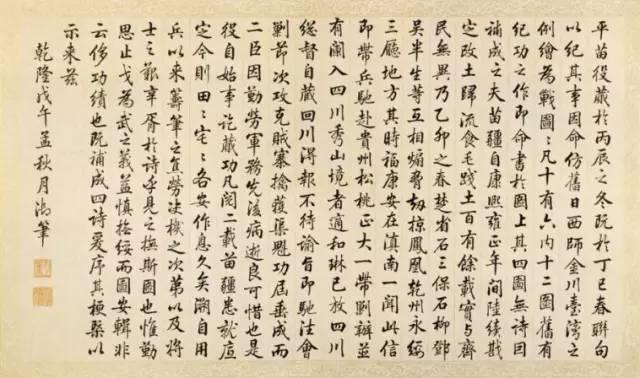 平苗役蕆於丙辰之冬既於丁巳春聯句
以紀其事因命仿舊日西師金川臺灣之
例繪為戰圖〻凡十有六內十二圖舊有
紀功之作即命書於圖上其四圖無詩因
補成之夫苗疆自康熙雍正年間陸續戡
定改土歸流食毛踐土百有餘載實與齊
民無異乃乙卯之春楚省石三保石柳鄧
吳半生等互相煽脅刼掠鳳凰乾州永綏
三廳地方其時福康安在滇南一聞此信
即帶兵馳赴貴州松桃正大一帶剿辦並
有闌入四川秀山境者適和琳已放四川
總督自藏回川得報不待諭旨即馳往會
剿節次攻克賊寨擒獲渠魁功屆垂成而
二臣因勤勞軍務先後病逝良可惜也是
役自始事訖蕆功凡閱二載苗疆悉就底
定今則田〻宅〻各安作息久矣溯自用
兵以來籌筆之宜勞決機之次第以及將
士之艱辛胥於詩乎見之撫斯圖也惟勤
思止戈為武之義益慎撫綏而圖安輯非
云侈功績也既補成四詩爰序其梗槩以
示來茲
乾隆戊午孟秋月御筆